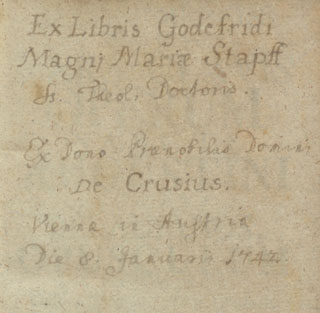 Ex Libris Godefridi
Magni Mariæ Stapff
Ss. Theol. Doctoris.
Ex Dono Prænobilis Domini
De Crusius.
Viennæ in Austria
Die 8. Januarii 1742.